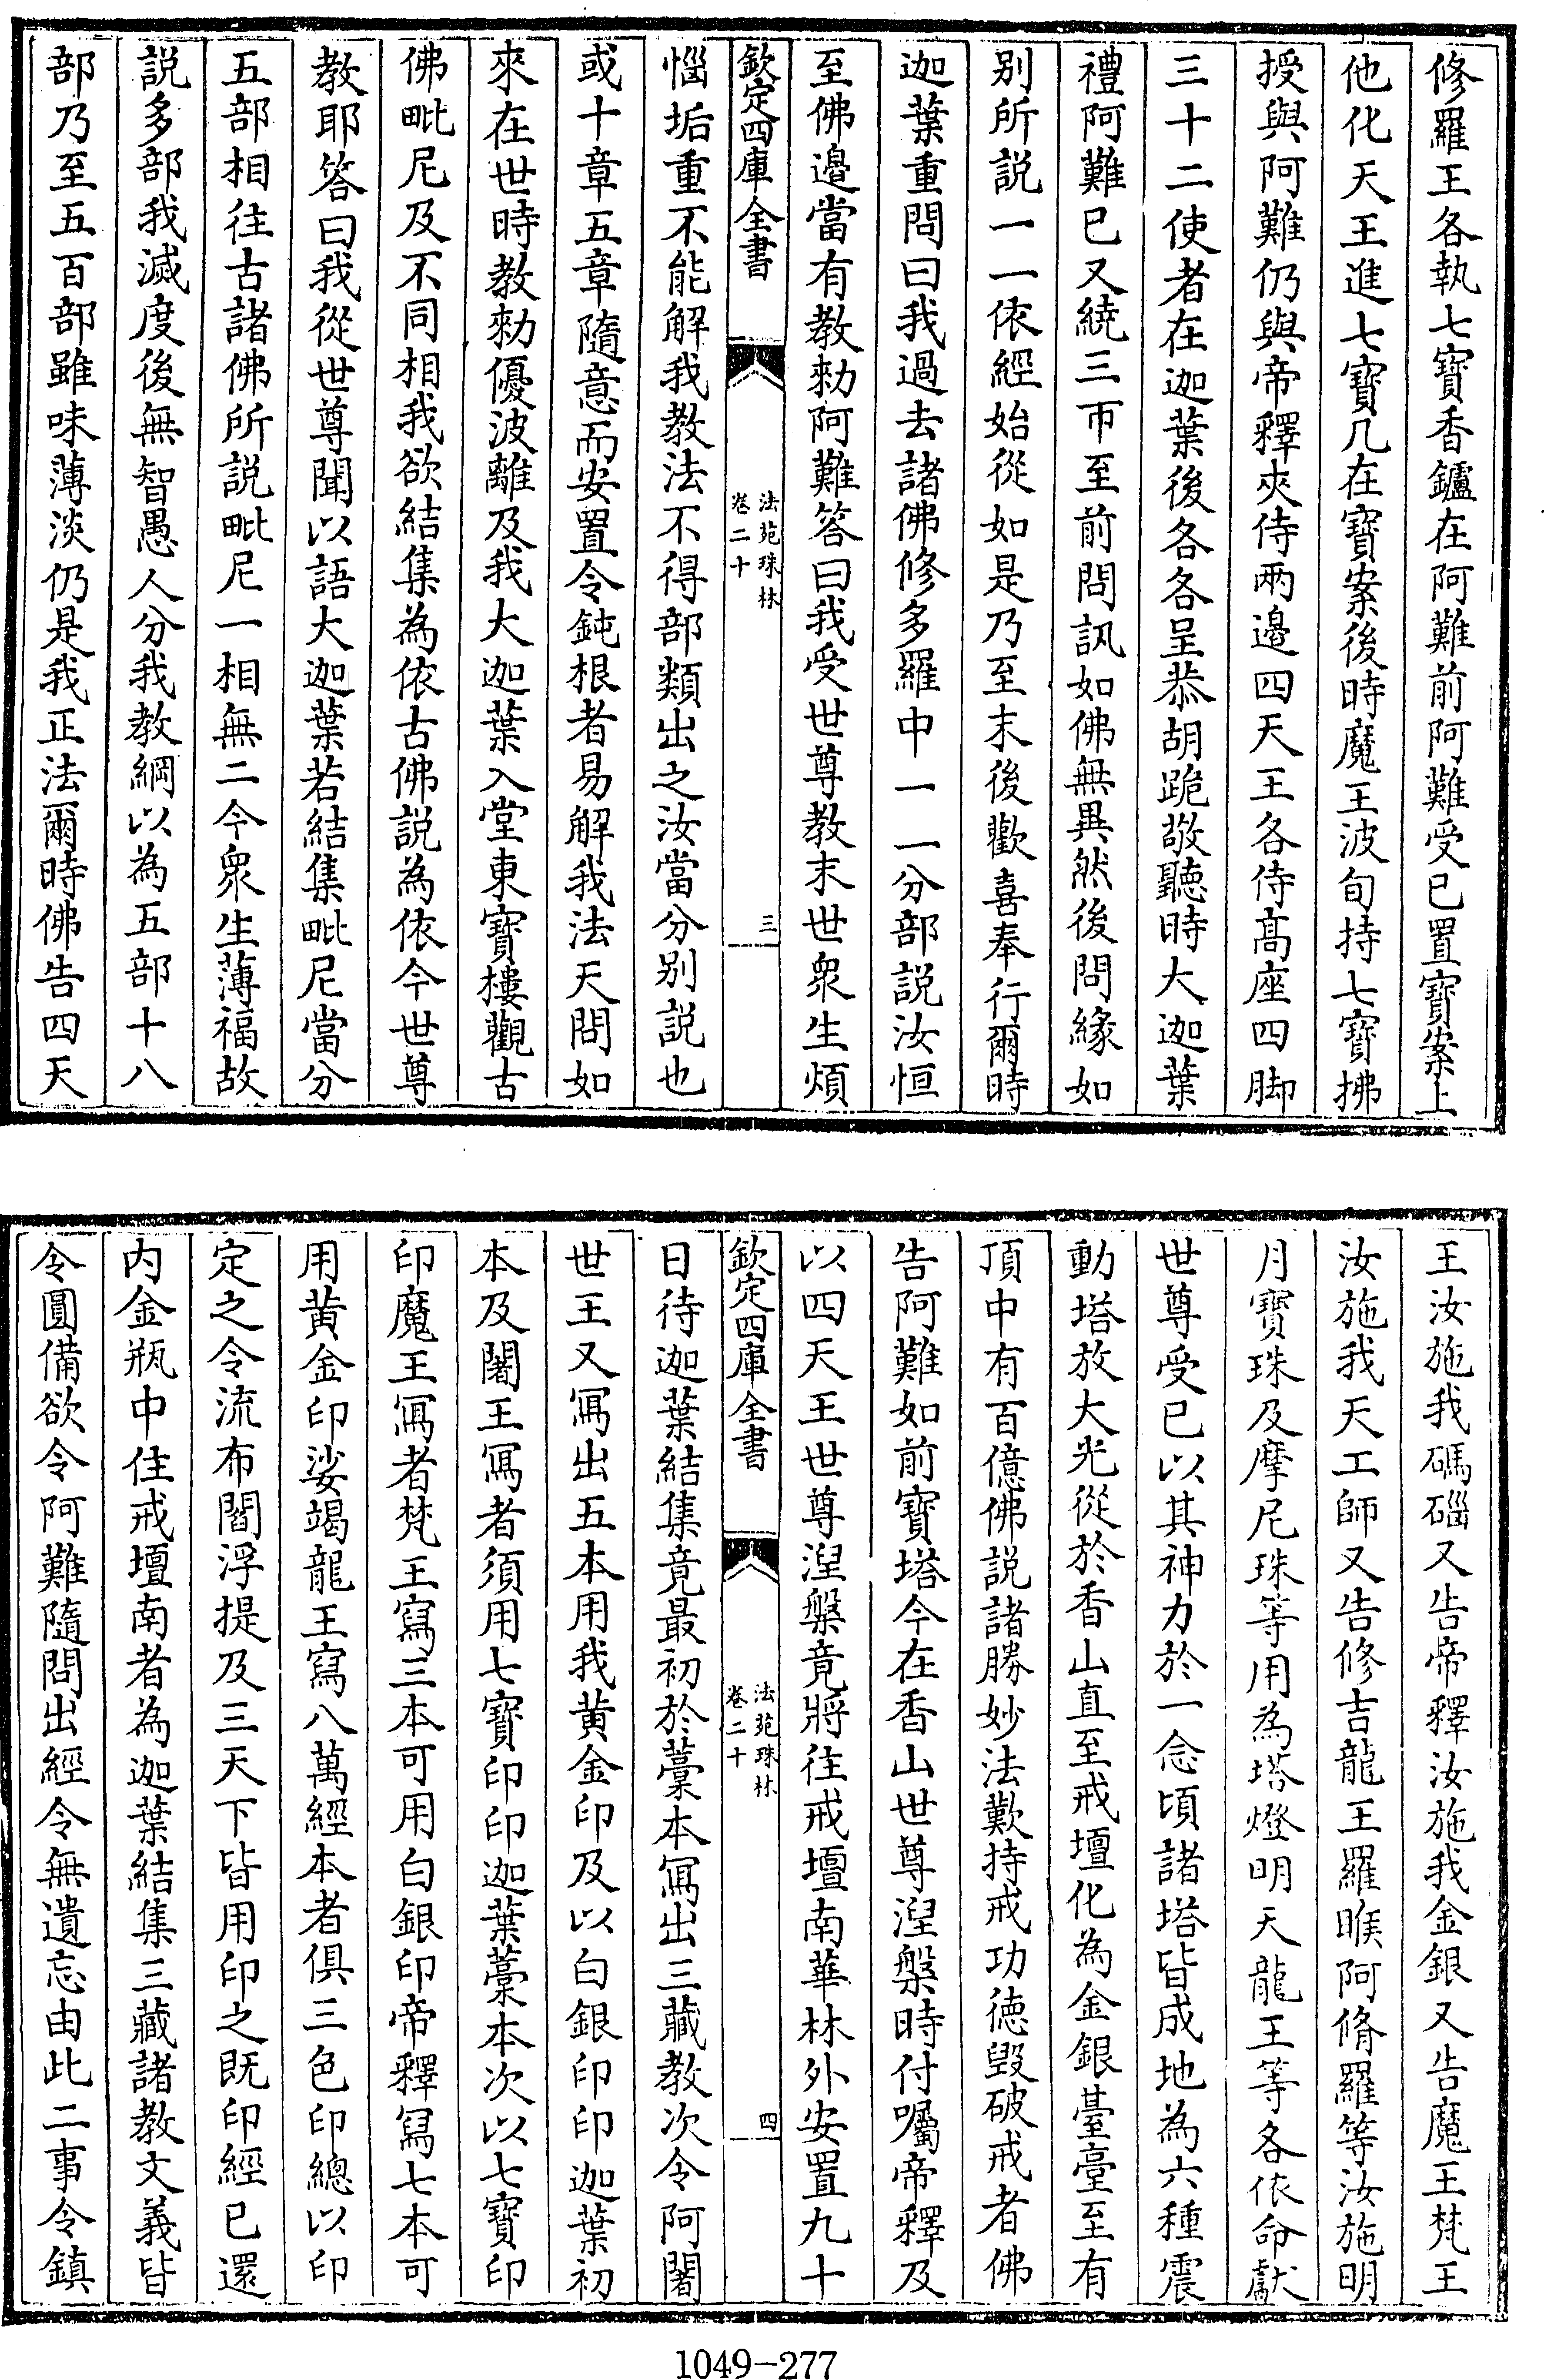 修羅王各執七寶香鑪在阿難前阿難受已置寶案上
他化天王進七寶几在寶案後時魔王波旬持七寶拂
授與阿難仍與帝釋夾侍兩邉四天王各侍髙座四脚
三十二使者在迦葉後各各呈恭胡跪敬聽時大迦葉
禮阿難已又繞三帀至前問訊如佛無異然後問緣如
别所説一一依經始從如是乃至末後歡喜奉行爾時
迦葉重問曰我過去諸佛修多羅中一一分部説汝恒
至佛邉當有教勅阿難答曰我受世尊教末世衆生煩
欽定四庫全書
法苑珠林
卷二十
三
惱垢重不能解我教法不得部類出之汝當分别説也
或十章五章隨意而安置令鈍根者易解我法天問如
來在世時教勅優波離及我大迦葉入堂東寶樓觀古
佛毗尼及不同相我欲結集為依古佛説為依今世尊
教耶答曰我從世尊聞以語大迦葉若結集毗尼當分
五部相往古諸佛所説毗尼一相無二今衆生薄福故
説多部我滅度後無智愚人分我教綱以為五部十八
部乃至五百部雖味薄淡仍是我正法爾時佛告四天
王汝施我碼碯又告帝釋汝施我金銀又告魔王梵王
汝施我天工師又告修吉龍王羅睺阿脩羅等汝施明
月寶珠及摩尼珠等用為塔燈明天龍王等各依命獻
世尊受已以其神力於一念頃諸塔皆成地為六種震
動塔放大光從於香山直至戒壇化為金銀臺臺至有
頂中有百億佛説諸勝妙法歎持戒功徳毁破戒者佛
告阿難如前寶塔今在香山世尊涅槃時付囑帝釋及
以四天王世尊涅槃竟將往戒壇南華林外安置九十
欽定四庫全書
法苑珠林
卷二十
四
日待迦葉結集竟最初於藁本寫出三藏教次令阿闍
世王又寫出五本用我黄金印及以白銀印印迦葉初
本及闍王寫者須用七寶印印迦葉藁本次以七寶印
印魔王寫者梵王寫三本可用白銀印帝釋寫七本可
用黄金印娑竭龍王寫八萬經本者俱三色印總以印
定之令流布閻浮提及三天下皆用印之既印經已還
内金瓶中住戒壇南者為迦葉結集三藏諸教文義皆
令圓備欲令阿難隨問出經令無遺忘由此二事令鎮
1049-277